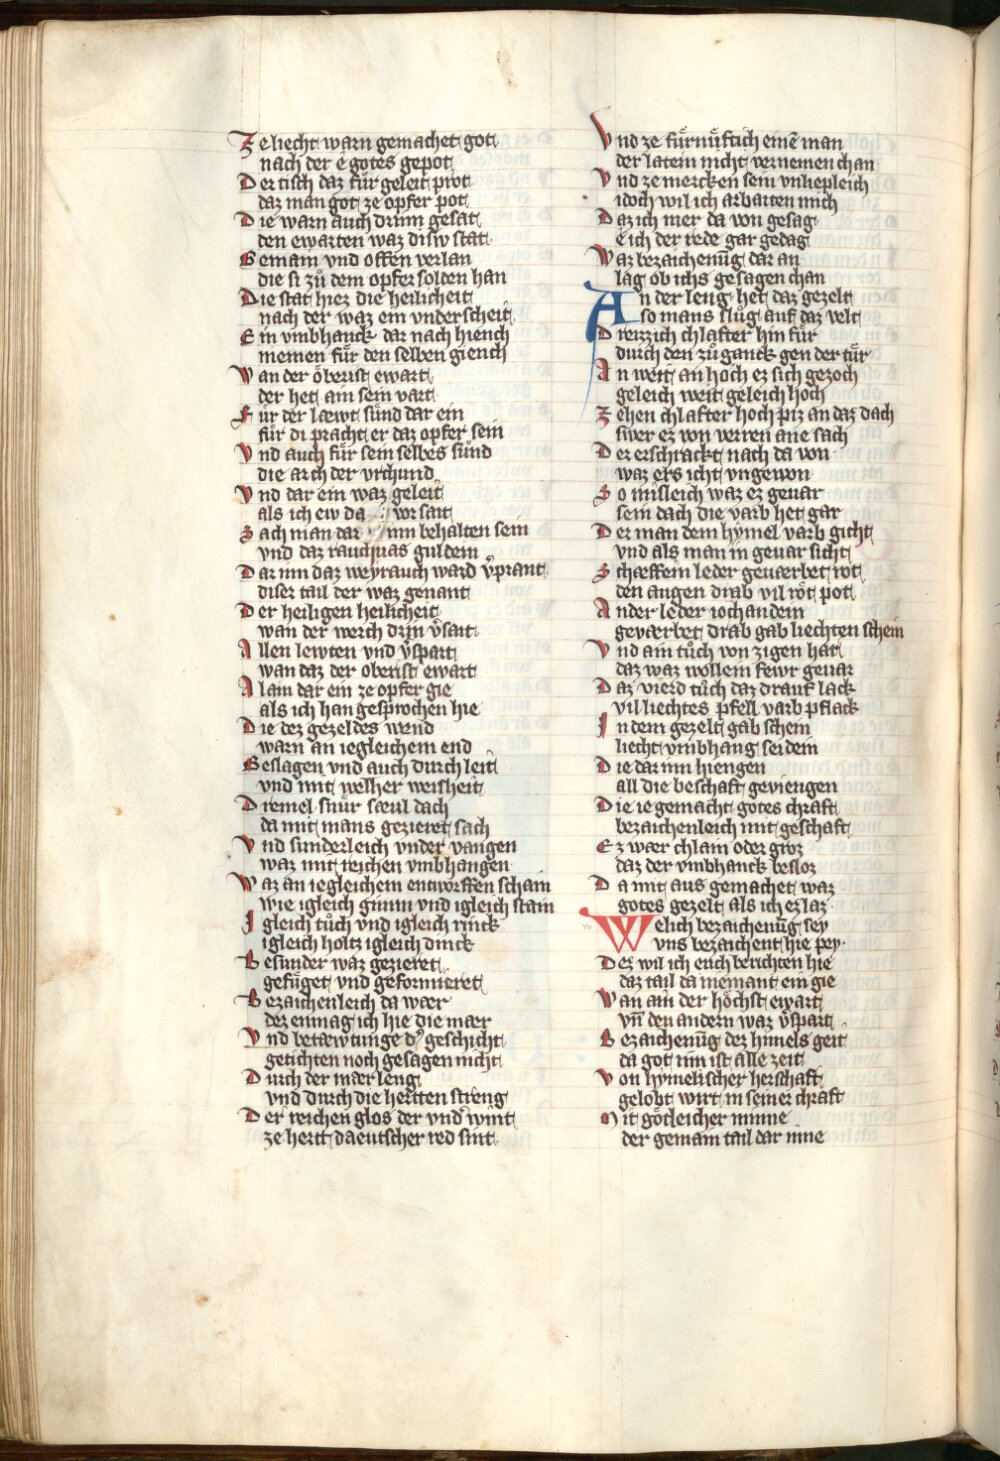 Ze liecht warn gemachet got
nach der e gotes gepot
Der tisch daz für geleit prot
daz man got ze opfer pot
Die warn auch drinn gesat
den ewarten waz disiv stat
Gemain vnd offen verlan
die si zů dem opfer solden han
Die stat hiez die heilicheit
nach der waz ein vnderscheit
Ein vmbhanck dar nach hiench
niemen für den selben giench
Wan der öberist ewart
der het ain sein vart
Für der læwt sünd dar ein
für di pracht er daz opfer sein
Vnd auch für sein selbes sünd
die arch der vrchund
Vnd dar ein waz geleit
als ich ew da vor sait
Sach man dar inn behalten sein
vnd daz rauchuas guldein
Dar inn daz weyrauch ward v̓prant
diser tail der waz genant
Der heiligen heilicheit
wan der werch drin v̓sait
Allen lewten vnd v̓spart
wan daz der oberist ewart
Alain dar ein ze opfer gie
als ich han gesprochen hie
Die dez gezeldes wend
warn an iegleichem end
Beslagen vnd auch durch leit
vnd mit welher weisheit
Dremel snür sæul dach
da mit mans gezieret sach
Vnd sunderleich vnder vangen
waz mit reichen vmbhangen
Waz an iegleichem entworffen schain
wie igleich gimm vnd igleich stain
Igleich tůch vnd igleich rinck
igleich holtz igleich dinck
Besunder waz gezieret
gefüget vnd geformieret
Bezaichenleich da wær
dez enmag ich hie die mær
Vnd betæwtunge d̓ geschicht
getichten noch gesagen nicht
Durch der mær leng
vnd durch die hertten streng
Der reichen glos der vnd wint
ze hertt daeutscher red sint
Vnd ze fürnüftich einē man
der latein nicht vernemen chan
Vnd ze mercken sein vnliepleich
idoch wil ich arbaiten mich
Daz ich mer da von gesag
e ich der rede gar gedag
Waz bezaichenūg dar an
lag ob ichs gesagen chan
An der leng het daz gezelt
so mans slůg auf daz velt
Dreizzich chlafter hin für
durch den zůganck gen der tür
An weit an höch ez sich gezoch
geleich weit geleich hoch
Zehen chlafter hoch piz an daz dach
swer ez von verren ane sach
Der erschrackt nach da von
waz ers icht vngewon
So misleich waz ez geuar
sein dach die varb het gar
Der man dem hymel varb gicht
vnd als man in geuar sicht
Schæffein leder geuerbet rot
den augen drab vil röt pot
Ander leder iochandein
geværbet drab gab liechten schein
Vnd ain tůch von zigen har
daz waz wollein fewr geuar
Daz vierd tůch daz drauf lack
vil liechtes pfell varb pflack
In dem gezelt gab schein
liecht vmbhang seidein
Die dar inn hiengen
all die beschaft geviengen
Die ie gemacht gotes chraft
bezaichenleich mit geschaft
Ez wær chlain oder groz
daz der vmbhanck besloz
Da mit aus gemachet waz
gotes gezelt als ich ez laz
Welich bezaichenūg sey
vns bezaichent hie pey
Dez wil ich euch berichten hie
daz tail da niemant ein gie
Wan ain der höchst ewart
vn̄ den andern waz v̓spart
Bezaichenūg dez himels geit
da got inn ist alle zeit
Von hymelischer herschaft
gelobt wirt in seiner chraft
Mit götleicher minne
der gemain tail dar inne